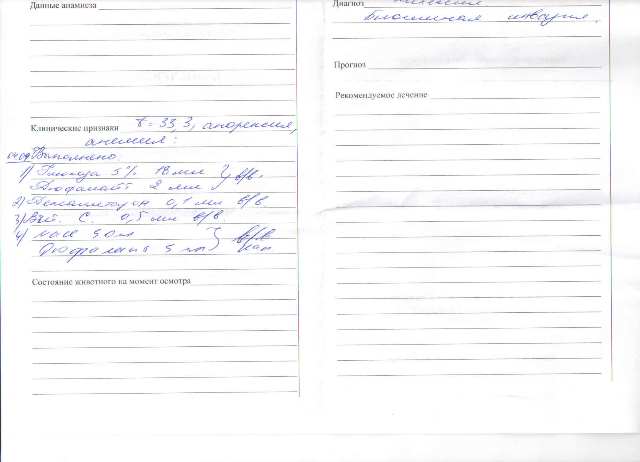 Данные анамнеза
Клинические признаки t = 33,3, анорексия,
анемия:
04.09 Выполнено:
1) Глюкоза 5% 18 мл } в/в.
Дюфалайт 2 мл
2) Дексаметазон 0,1 мл в/в
3) Вит. С. 0,5 мл в/в.
4) 5 мл } в/в
Дюфалайт 5 мл кап
Состояние животного на момент осмотра
Диагноз
блошиная инвазия.
Прогноз
Рекомендуемое лечение